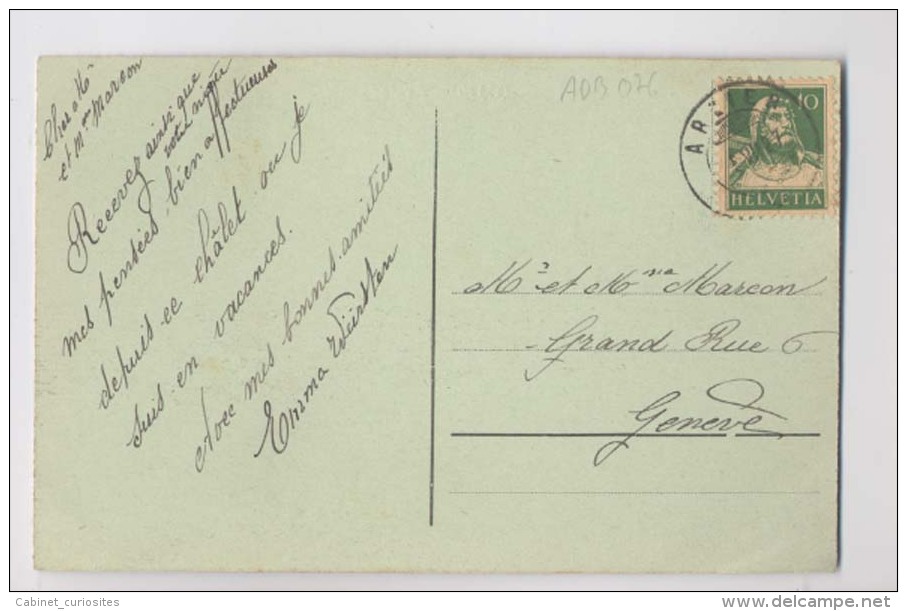 Cher Mr
et Mme Marcon
Recevez ainsi que
votre nièce
mes pensées bien affectueuses
depuis ce châlet ou je
suis en vacances.
Avec mes bonnes amitiés
Emma
ADB 076
10
HELVETIA
Mr et Mme Marcon
Grand Rue 6
Genève
Cabinet_curiosites
delcampe.net